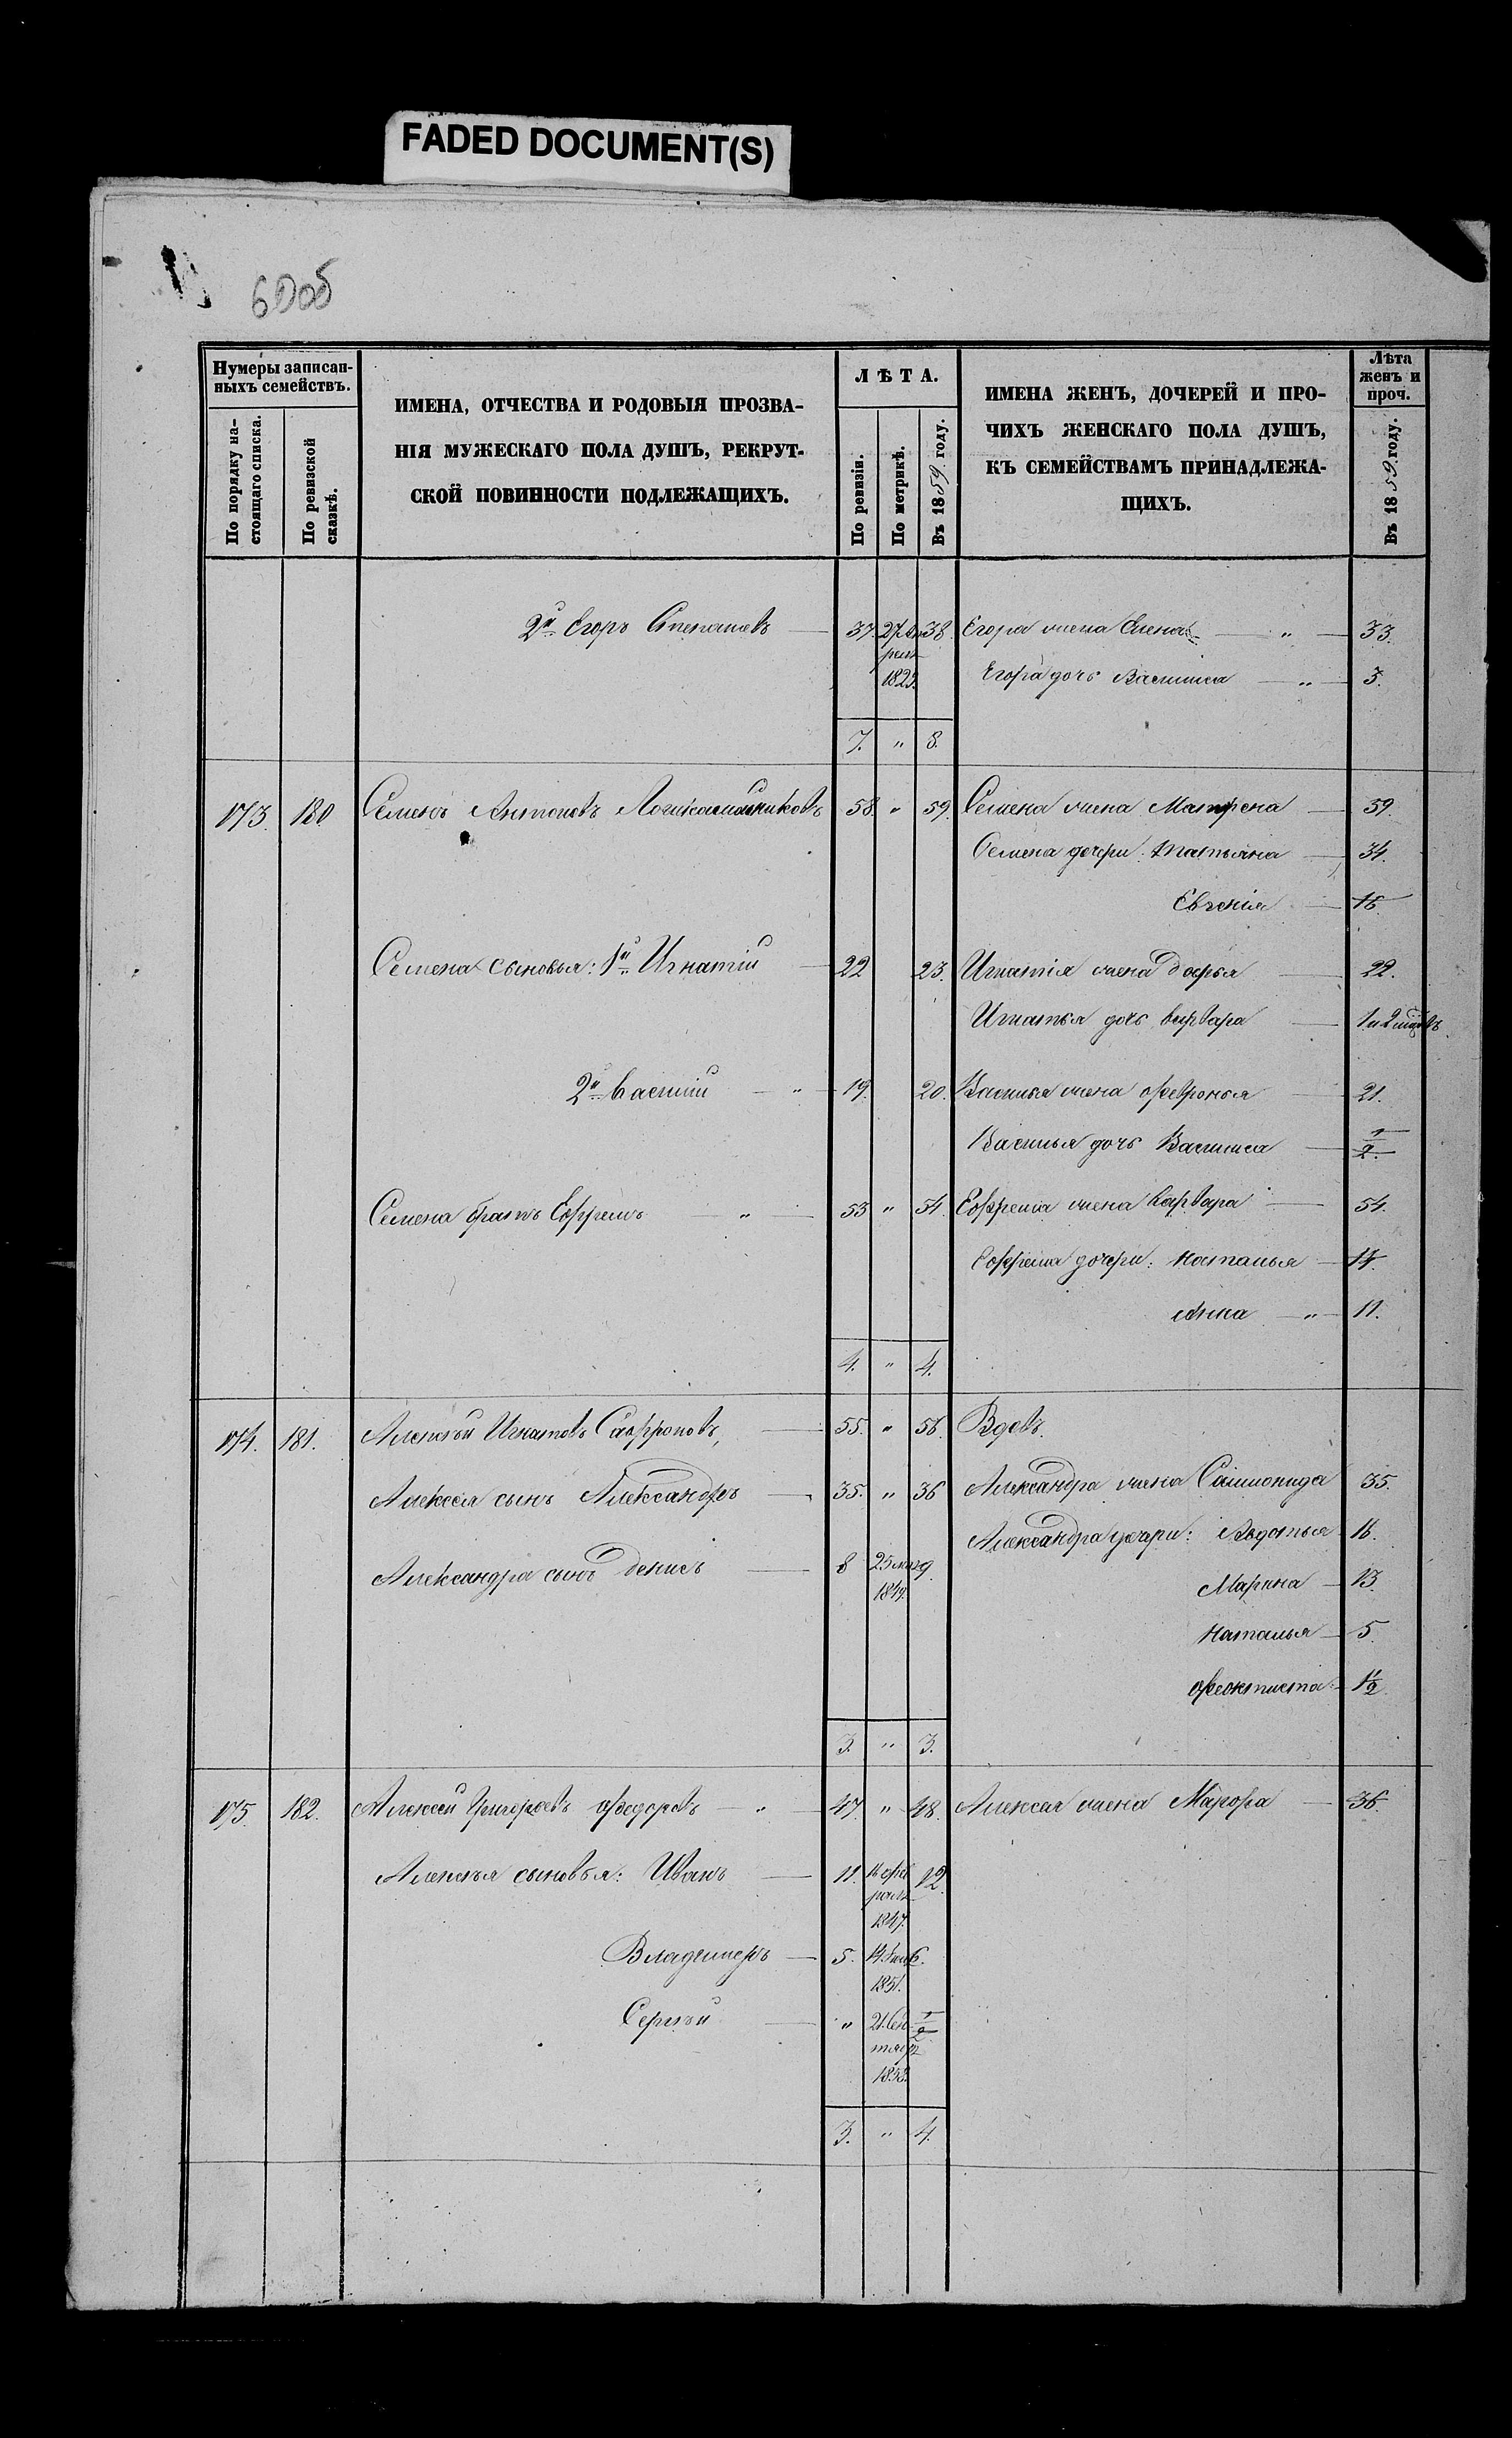 FADED DOCUMENT(S)
60об
Нумеры записан-
ныхъ семействъ.
По порядку на-
стоящаго списка.
По ревизской
сказкѣ.
ИМЕНА, ОТЧЕСТВА И РОДОВЫЯ ПРОЗВА-
НІЯ МУЖЕСКАГО ПОЛА ДУШЪ, РЕКРУТ-
СКОЙ ПОВИННОСТИ ПОДЛЕЖАЩИХЪ.
ЛѢТА.
По ревизіи.
По метрикѣ.
Въ 1859 году.
ИМЕНА ЖЕНЪ, ДОЧЕРЕЙ И ПРО-
ЧИХЪ ЖЕНСКАГО ПОЛА ДУШЪ,
КЪ СЕМЕЙСТВАМЪ ПРИНАДЛЕЖА-
ЩИХЪ.
Лѣта
женъ и
проч.
Въ 1859 году.
2й Егоръ Степановъ — 37. 27 Ап 38. Егора жена Елена — " — 33.
реля
182
Егора дочь Василиса — " — 3.
7. " 8.
173. 180 Семенъ Антоновъ 58. " 59. Семена жена Матрена — 59.
Семена дочери: Татьяна — 34.
Евгенія — 16
Семена сыновья: 1й Игнатій — 22 23. Игнатія жена Дарья — 22.
Игнатья дочь Варвара — 1 и 2 мѣ
2й Василій — " — 19. 20. Василья жена Февронья — 21.
Василья дочь Василиса — 1/2.
Семена братъ Ефремъ — " — 53 " 54. Ефрема жена Варвара — 54.
Ефрема дочери: Наталья — 14.
Анна — " — 11.
4. " 4.
174. 181. Алексѣй Игнатовъ Сафроновъ, — 55. " 56. Вдовъ.
Алексея сынъ Александръ — 35. " 36 Александра жена 35.
Александра дочери: Авдотья 16.
Александра сынъ Денисъ — 8 25 9
1849.
Марина — 13.
Наталья — 5.
Феоктиста — 1 1/2
3. " 3.
175. 182. Алексей Григорьевъ Федоровъ — " — 47. " 48. Алексея жена Марфа — 36.
Алексѣя сыновья: Иванъ — 11. 16 фев 12
раля
1847.
Владимеръ — 5. 14 6.
185
Сергѣй — " 21. Сен 1/2
тября
1858.
3. " 4.